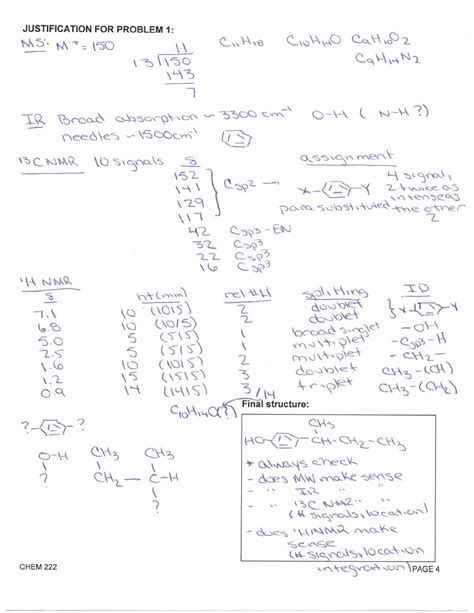 JUSTIFICATION FOR PROBLEM 1:
MS: M+ = 150
11
13)150
143
7
C11H18 C10H14O C9H10O2
C9H14N2
IR Broad absorption ~ 3300 cm-1 O-H ( N-H ?)
needles ~ 1500cm-1
13C NMR 10 signals δ assignment
152
141
129
117
Csp2 → X- -Y
4 signal,
2 twice as
intense as
the other
2
para substituted
42 Csp3-EN
32 Csp3
22 Csp3
16 Csp3
1H NMR
δ ht(mm) rel #H splitting ID
7.1 10 (10/5) 2 doublet
6.8 10 (10/5) 2 doublet
X- -Y
5.0 5 (5/5) 1 broad singlet -OH
2.5 5 (5/5) 1 multiplet -Csp3-H
1.6 10 (10/5) 2 multiplet -CH2-
1.2 15 (15/5) 3 doublet CH3-(CH)
0.9 14 (14/5) 3 triplet CH3-(CH2)
/14
C10H14O(?)
Final structure:
?- -?
O-H CH3 CH3
? CH2 - C-H
?
CH3
HO- -CH-CH2-CH3
* always check
- does MW make sense
- " IR "
- " 13C NMR "
(# signals, location)
- does 1HNMR make
sense
(# signals, location
integration)
CHEM 222
PAGE 4